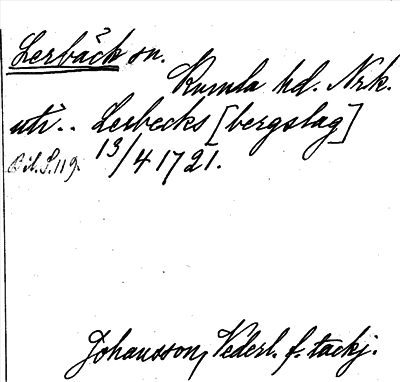 Lerbäck sn.
Kumla hd. Nrk.
uti .. Lerbecks [bergslag]
13/4 1721.
Bil. S. 119.
Johansson, Vederl. f. tackj.